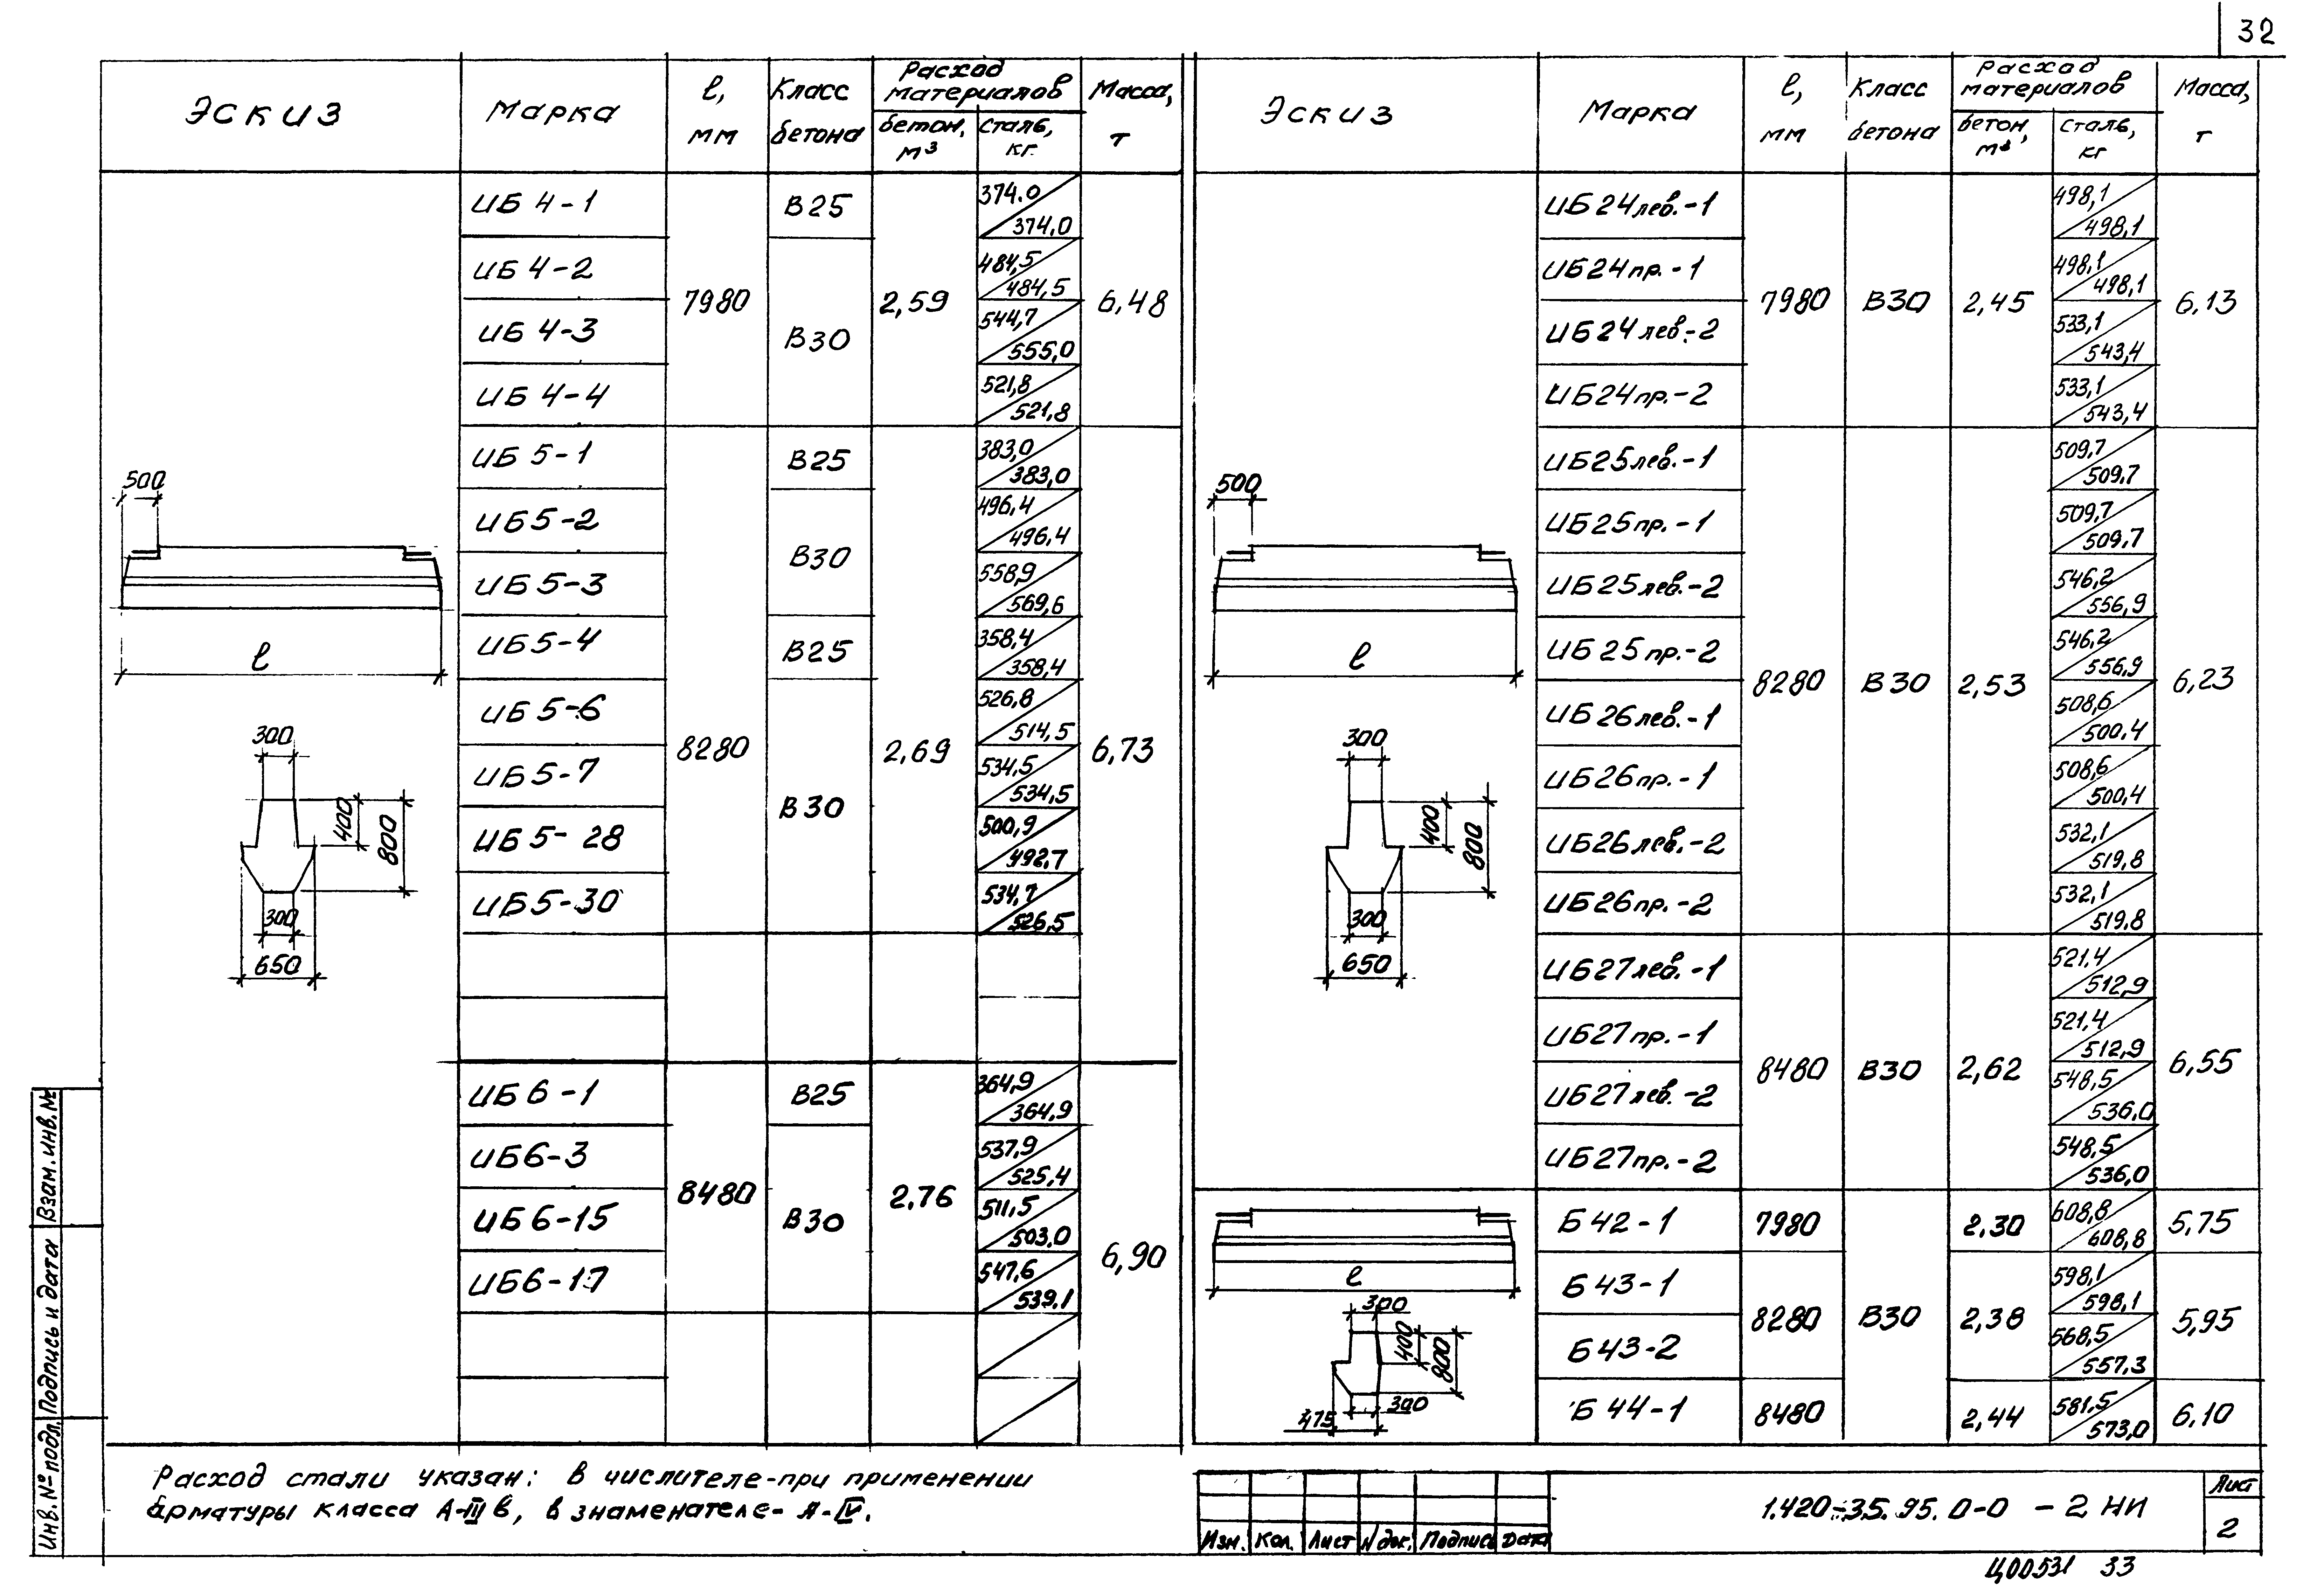 32
Эскиз Марка ℓ, мм Класс бетона Расход материалов бетон, м³ сталь, кг Масса, т
ИБ 4-1 7980 В25 2,59 374.0 374,0 6,48
ИБ 4-2 В30 484,5 484,5
ИБ 4-3 544,7 555,0
ИБ 4-4 521,8 521,8
ИБ 5-1 8280 В25 2,69 383,0 383,0 6,73
ИБ 5-2 В30 496,4 496,4
ИБ 5-3 558,9 569,6
ИБ 5-4 В25 358,4 358,4
ИБ 5-6 В30 526,8 514,5
ИБ 5-7 534,5 534,5
ИБ 5-28 500,9 492,7
ИБ5-30 534,7 526,5
ИБ 6-1 8480 В25 2,76 364,9 364,9 6,90
ИБ6-3 В30 537,9 525,4
ИБ 6-15 511,5 503,0
ИБ6-17 547,6 539,1
500
ℓ
300
400
800
300
650
Эскиз Марка ℓ, мм Класс бетона Расход материалов бетон, м³ сталь, кг Масса, т
ИБ24лев.-1 7980 В30 2,45 498,1 498,1 6,13
ИБ24пр.-1 498,1 498,1
ИБ24лев.-2 533,1 543,4
ИБ24пр.-2 533,1 543,4
ИБ25лев.-1 8280 В30 2,53 509,7 509,7 6,23
ИБ25пр.-1 509,7 509,7
ИБ25лев.-2 546,2 556,9
ИБ25пр.-2 546,2 556,9
ИБ26лев.-1 508,6 500,4
ИБ26пр.-1 508,6 500,4
ИБ26лев.-2 532,1 519,8
ИБ26пр.-2 532,1 519,8
ИБ27лев.-1 8480 В30 2,62 521,4 512,9 6,55
ИБ27пр.-1 521,4 512,9
ИБ27лев.-2 548,5 536,0
ИБ27пр.-2 548,5 536,0
Б 42-1 7980 В30 2,30 608,8 608,8 5,75
Б 43-1 8280 2,38 598,1 598,1 5,95
Б 43-2 568,5 557,3
Б 44-1 8480 2,44 581,5 573,0 6,10
500
ℓ
300
400
800
300
650
ℓ
300
400
800
300
475
Расход стали указан: в числителе-при применении
арматуры класса А-IIIв, в знаменателе- А-IV.
Инв.№подл. Подпись и дата Взам.инв.№
Изм. Кол. Лист N док. Подпись Дата
1.420-35.95.0-0 - 2 НИ
Лист
2
Ц00531 33